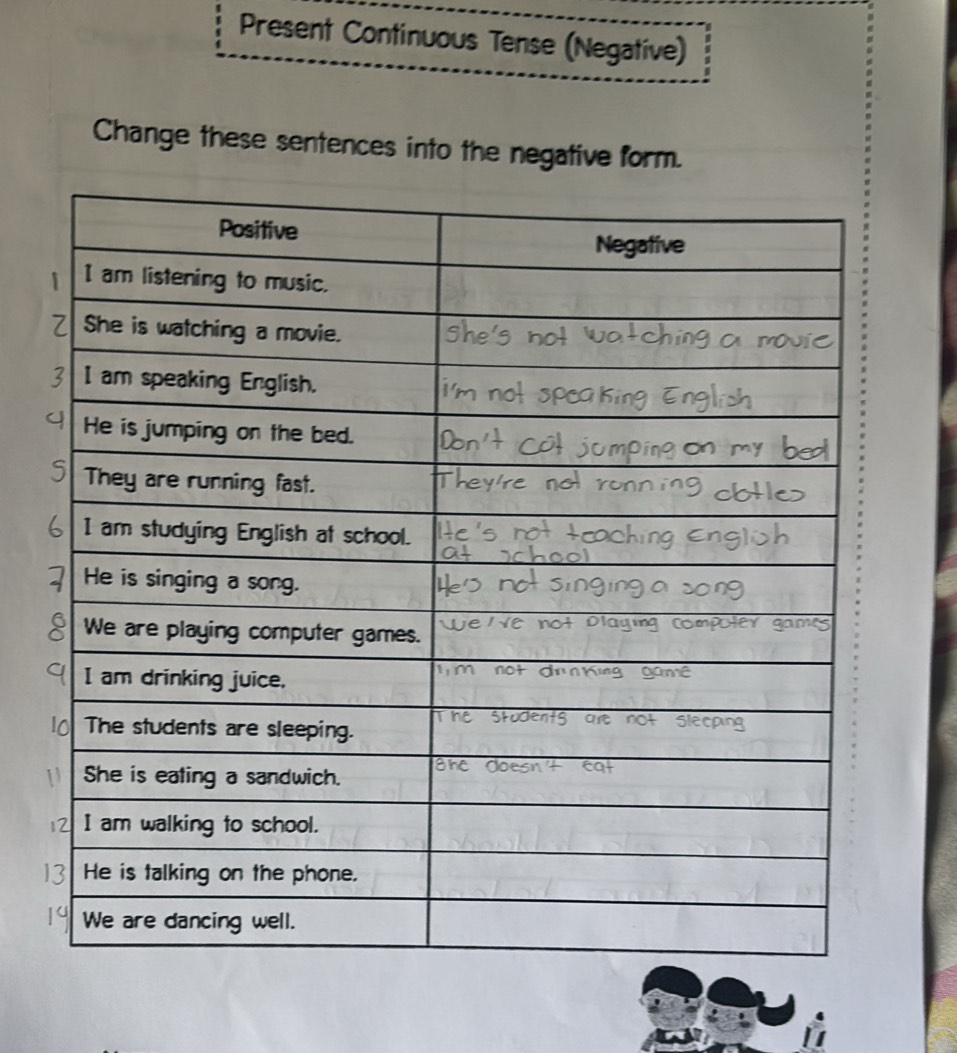 Present Continuous Tense (Negative)
Change these sentences into the negative form.
Positive Negative
1 I am listening to music.
2 She is watching a movie. she's not watching a movie
3 I am speaking English. i'm not speaking English
4 He is jumping on the bed. Don't jumping on my bed
5 They are running fast. They're not running
6 I am studying English at school. He's not teaching English
at school
7 He is singing a song. He's not singing a song
8 We are playing computer games. We're not playing computer games
9 I am drinking juice. I,m not drinking game
10 The students are sleeping. The students are not sleeping
11 She is eating a sandwich. She doesn't eat
12 I am walking to school.
13 He is talking on the phone.
14 We are dancing well.